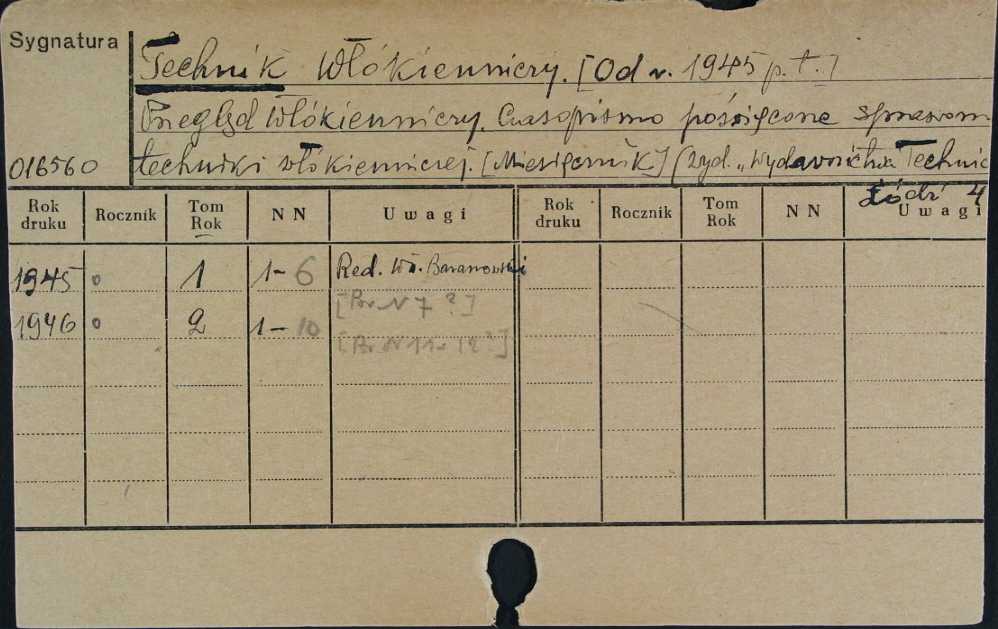 Sygnatura
Technik Włókienniczy. [Od r. 1945 p. t.]
Przegląd Włókienniczy. Czasopismo poświęcone sprawom
016560 techniki włókienniczej. [Miesięcznik] (Wyd. „Wydawnictwa Technic
Łódź 4
Rok druku Rocznik Tom Rok NN Uwagi Rok druku Rocznik Tom Rok NN Uwagi
1945 o 1 1-6 Red. Wł. Baranowski
[Br N 7 ?]
1946 o 2 1-10
[Br N 11-12?]